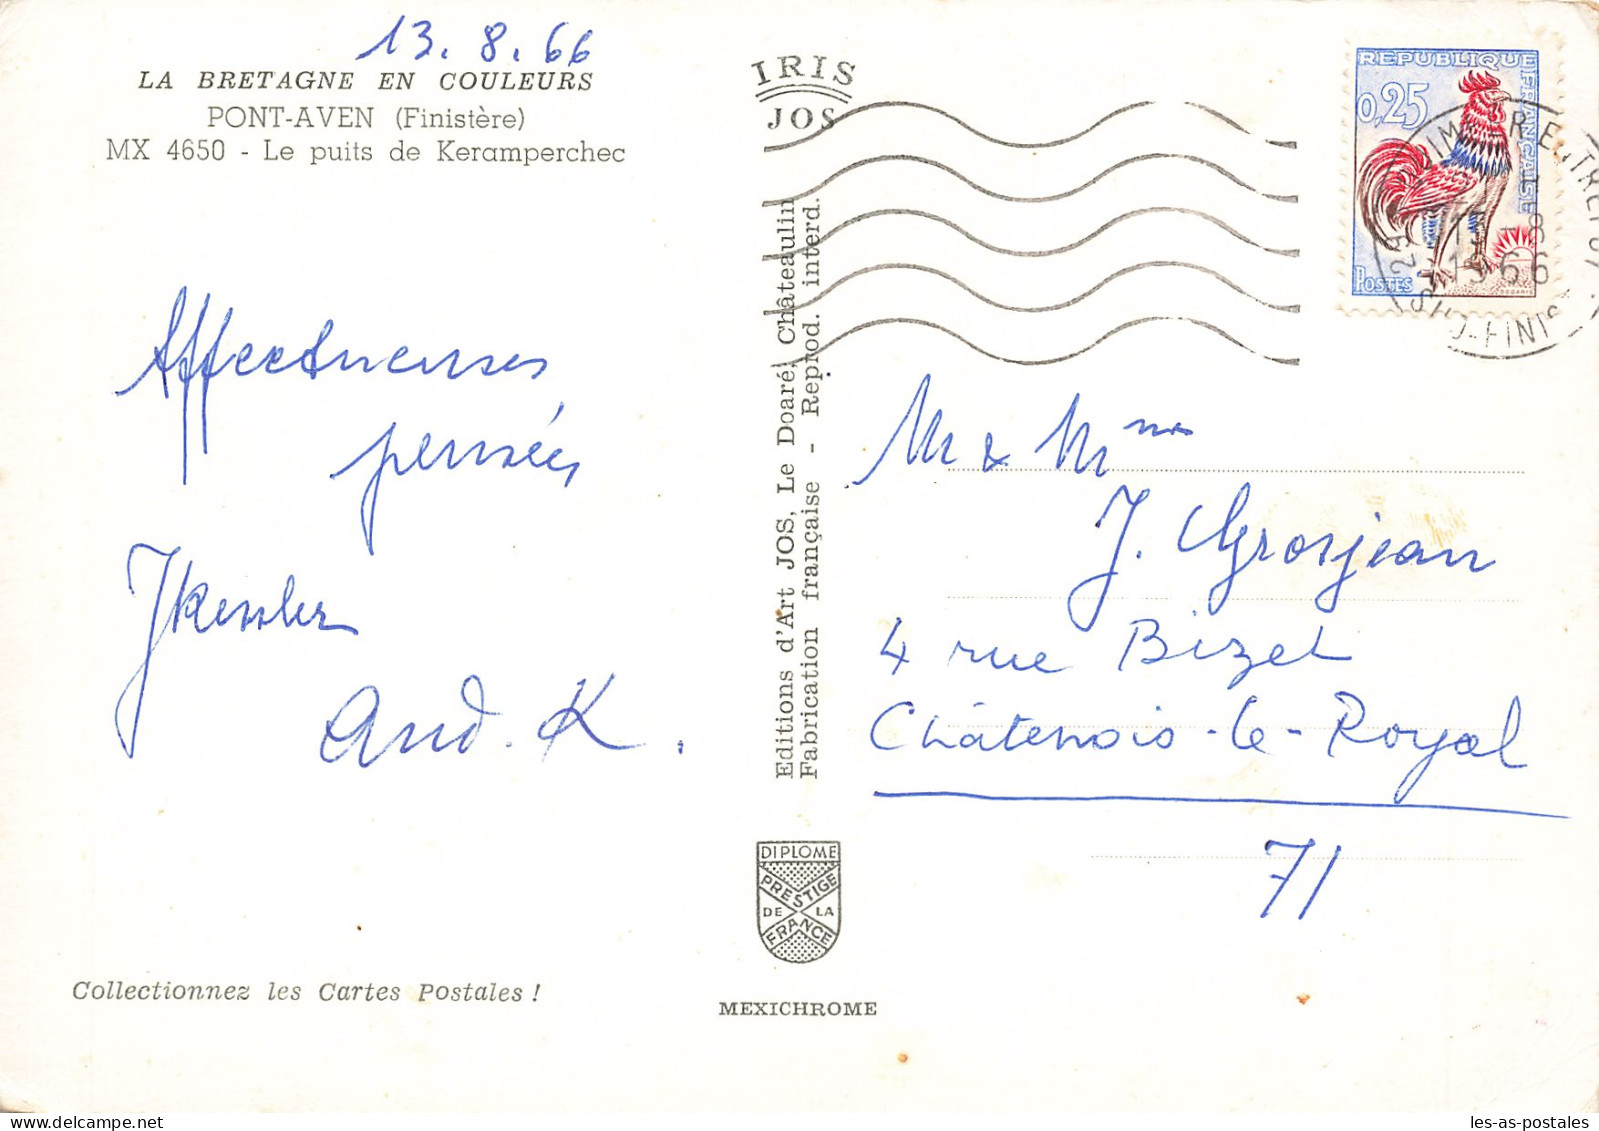 13.8.66
LA BRETAGNE EN COULEURS
PONT-AVEN (Finistère)
MX 4650 - Le puits de Keramperchec
Affectueuses
pensées
JKessler
And. K.
Collectionnez les Cartes Postales !
IRIS
JOS
Editions d'Art JOS, Le Doaré, Châteaulin
Fabrication française - Reprod. interd.
DIPLOME
PRESTIGE
DE LA
FRANCE
MEXICHROME
REPUBLIQUE
FRANÇAISE
0,25
POSTES
29
1966
FINIS
Mr & Mme
J. Grosjean
4 rue Bizet
Châtenois-le-Royal
71
les-as-postales